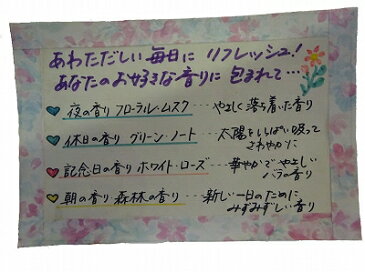 あわただしい毎日に リフレッシュ!
あなたのお好きな香りに包まれて…
夜の香り フローラル・ムスク…やさしく落ち着いた香り
休日の香り グリーン・ノート…太陽をいっぱい吸って
さわやかに
記念日の香り ホワイト・ローズ…華やかでやさしい
バラの香り
朝の香り 森林の香り…新しい一日のために
みずみずしい香り